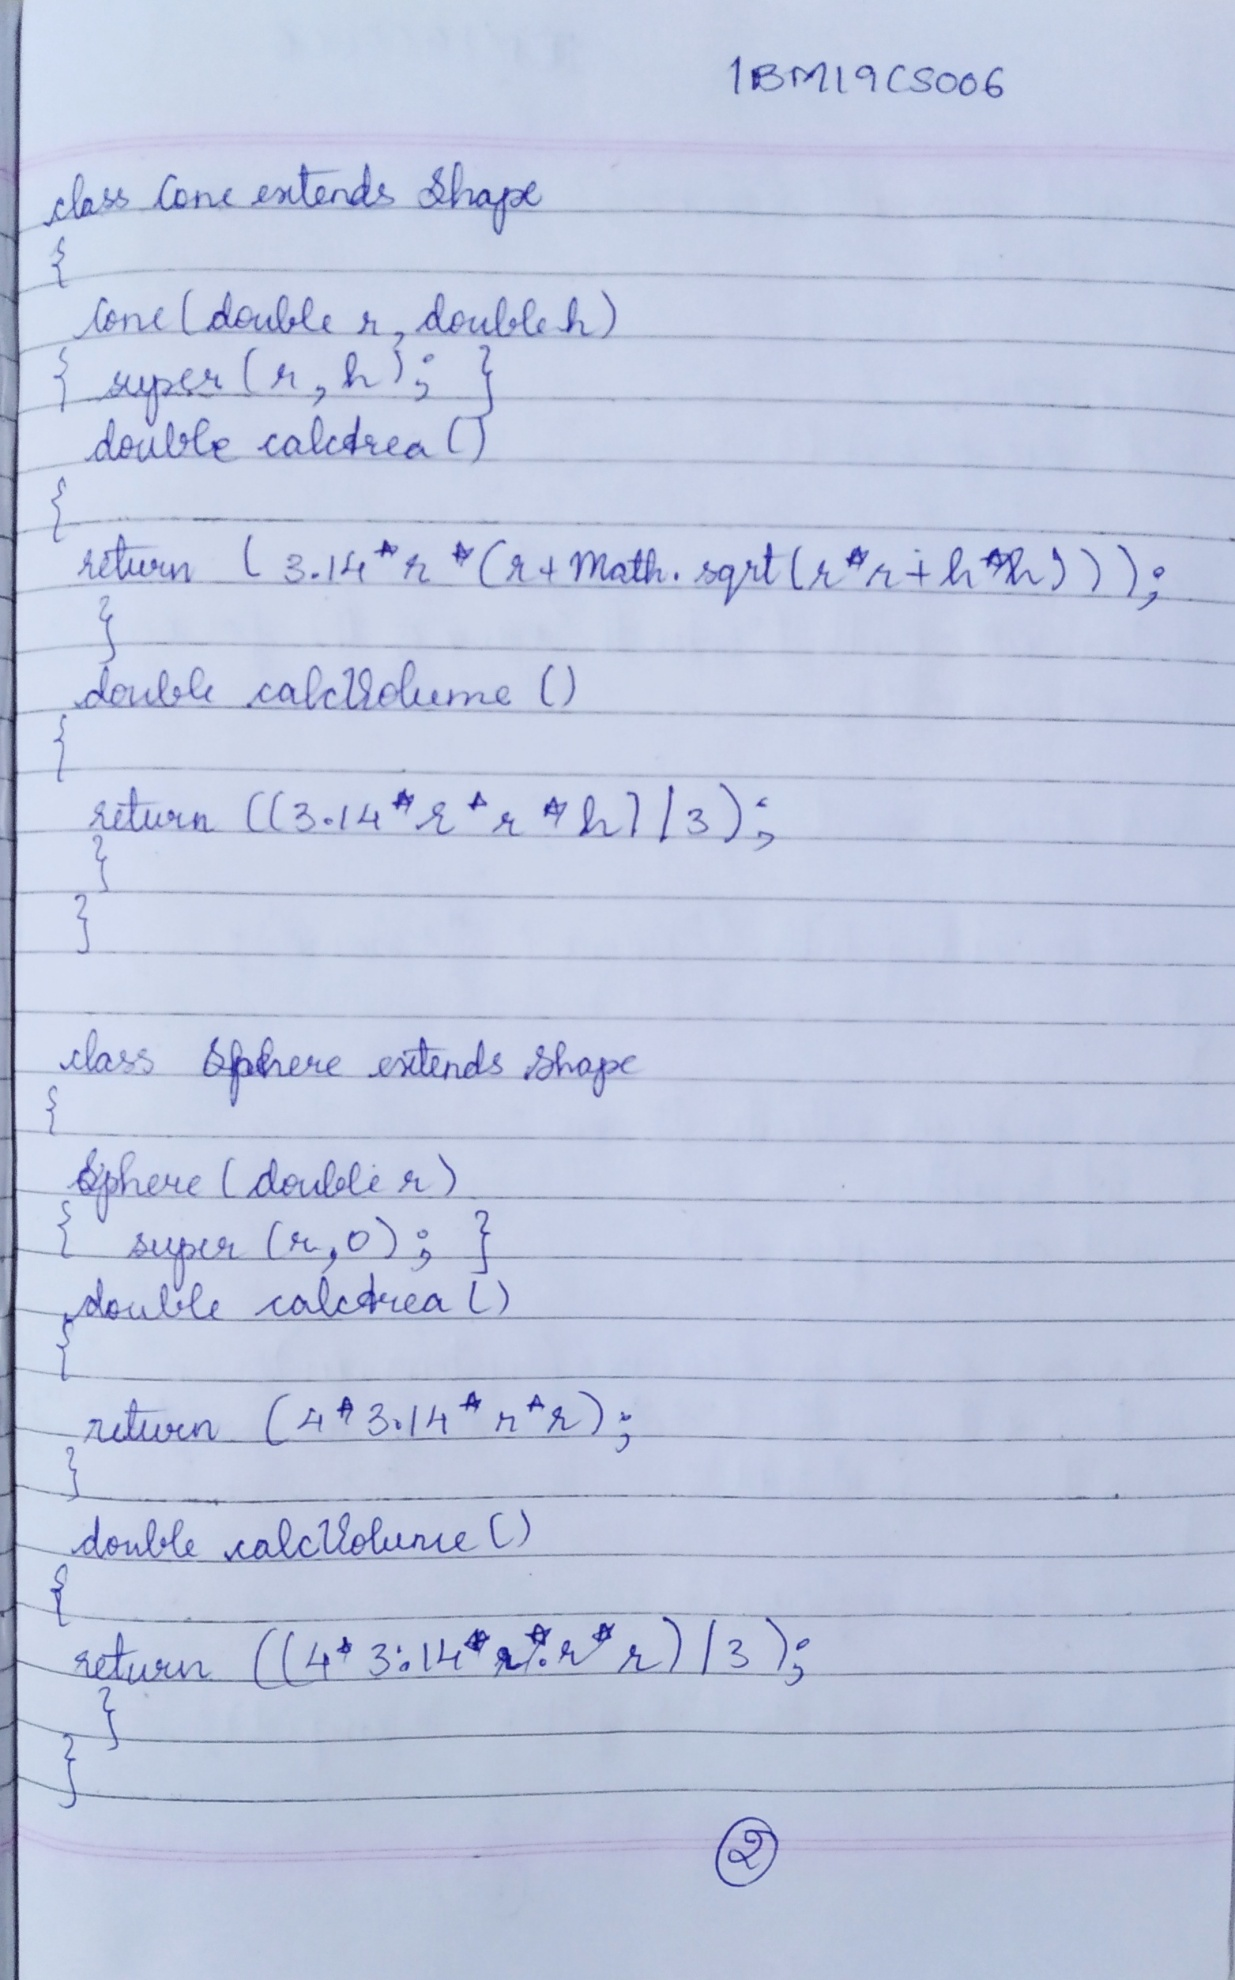 1BM19CS006
class Cone extends Shape
{
Cone(double r, double h)
{ super(r, h); }
double calcArea()
{
return (3.14*r*(r+Math.sqrt(r*r+h*h)));
}
double calcVolume()
{
return ((3.14*r*r*h)/3);
}
}
class Sphere extends Shape
{
Sphere(double r)
{ super(r,0); }
double calcArea()
{
return (4*3.14*r*r);
}
double calcVolume()
{
return ((4*3.14*r*r*r)/3);
}
}
2